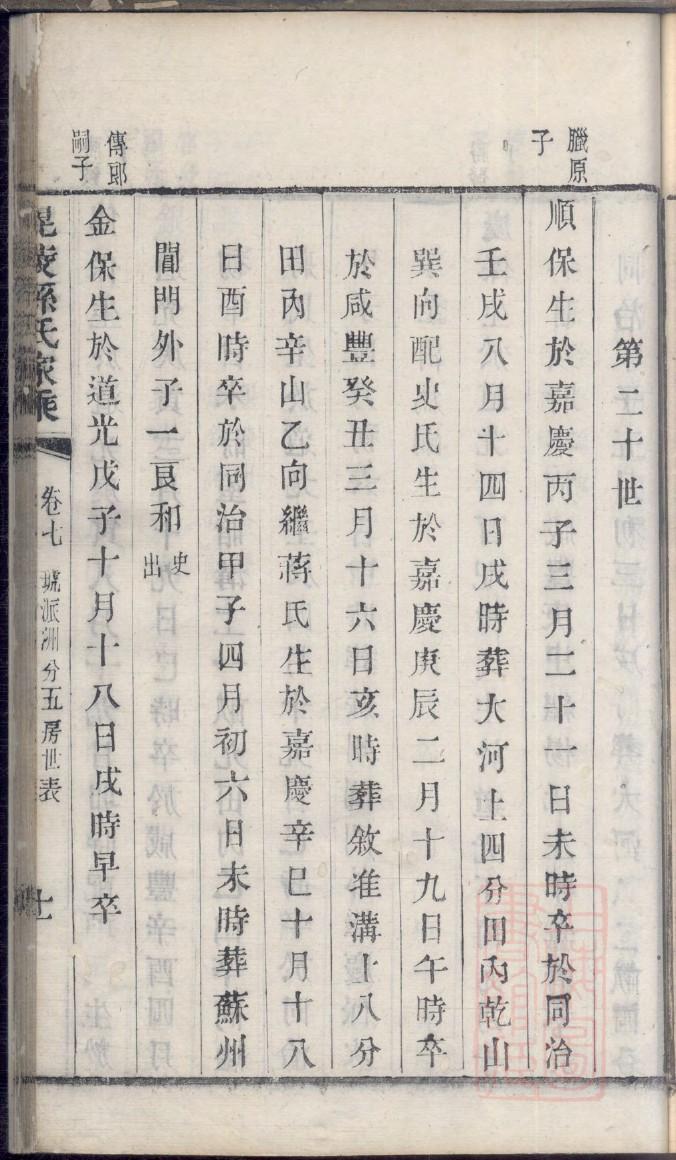 第二十世
臘原
子
順保生於嘉慶丙子三月二十一日未時卒於同治
壬戌八月十四日戌時葬大河上四分田內乾山
巽向配史氏生於嘉慶庚辰二月十九日午時卒
於咸豐癸丑三月十六日亥時葬敘淮溝上八分
田內辛山乙向繼蔣氏生於嘉慶辛巳十月十八
日酉時卒於同治甲子四月初六日未時葬蘇州
閶門外子一良和史出
傳郎
嗣子
金保生於道光戊子十月十八日戌時早卒
毘陵孫氏家乘
卷七
派洲分五房世表